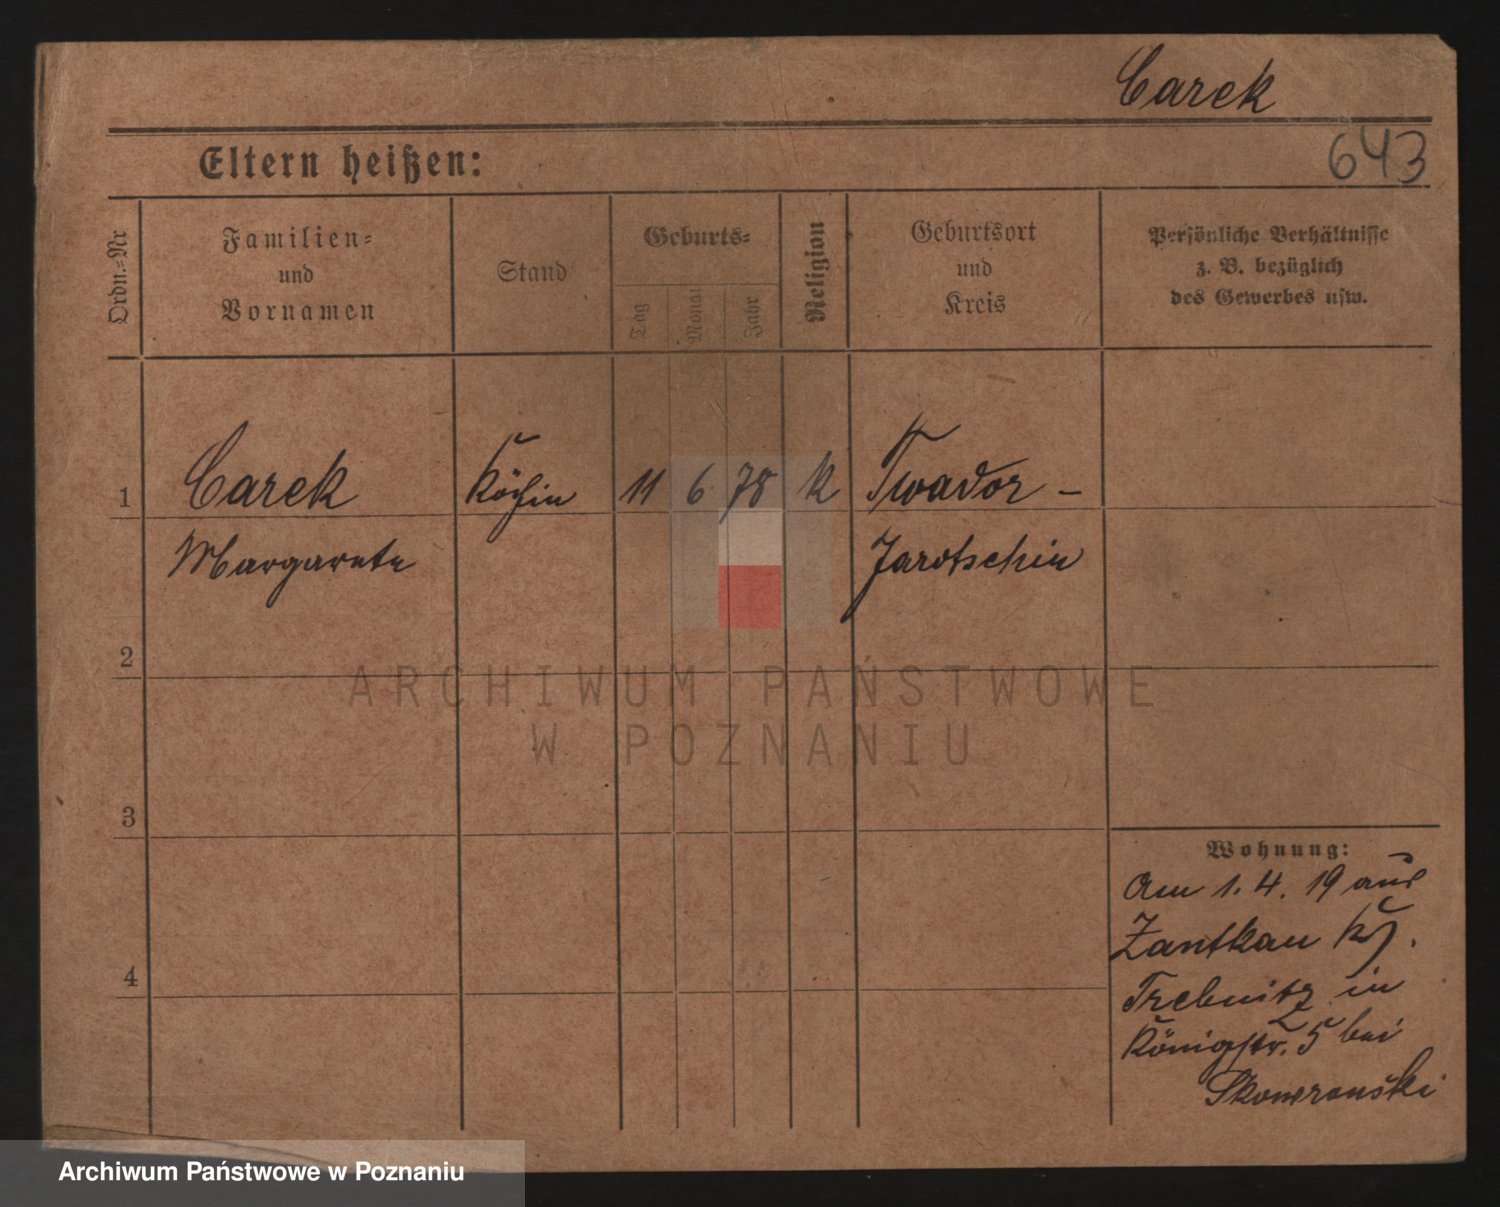 Carek
Eltern heißen:
643
Ordn.-Nr
Familien-
und
Vornamen
Stand
Geburts-
Tag
Monat
Jahr
Religion
Geburtsort
und
Kreis
Persönliche Verhältnisse
z. B. bezüglich
des Gewerbes usw.
1
Carek
Köchin
11
6
78
k
Twador -
Margarete
Jarotschin
2
ARCHIWUM PAŃSTWOWE
W POZNANIU
3
Wohnung:
Am 1. 4. 19 aus
Zantkau Kr.
4
Trebnitz in
Königstr. 5 bei
Skowronski
Archiwum Państwowe w Poznaniu